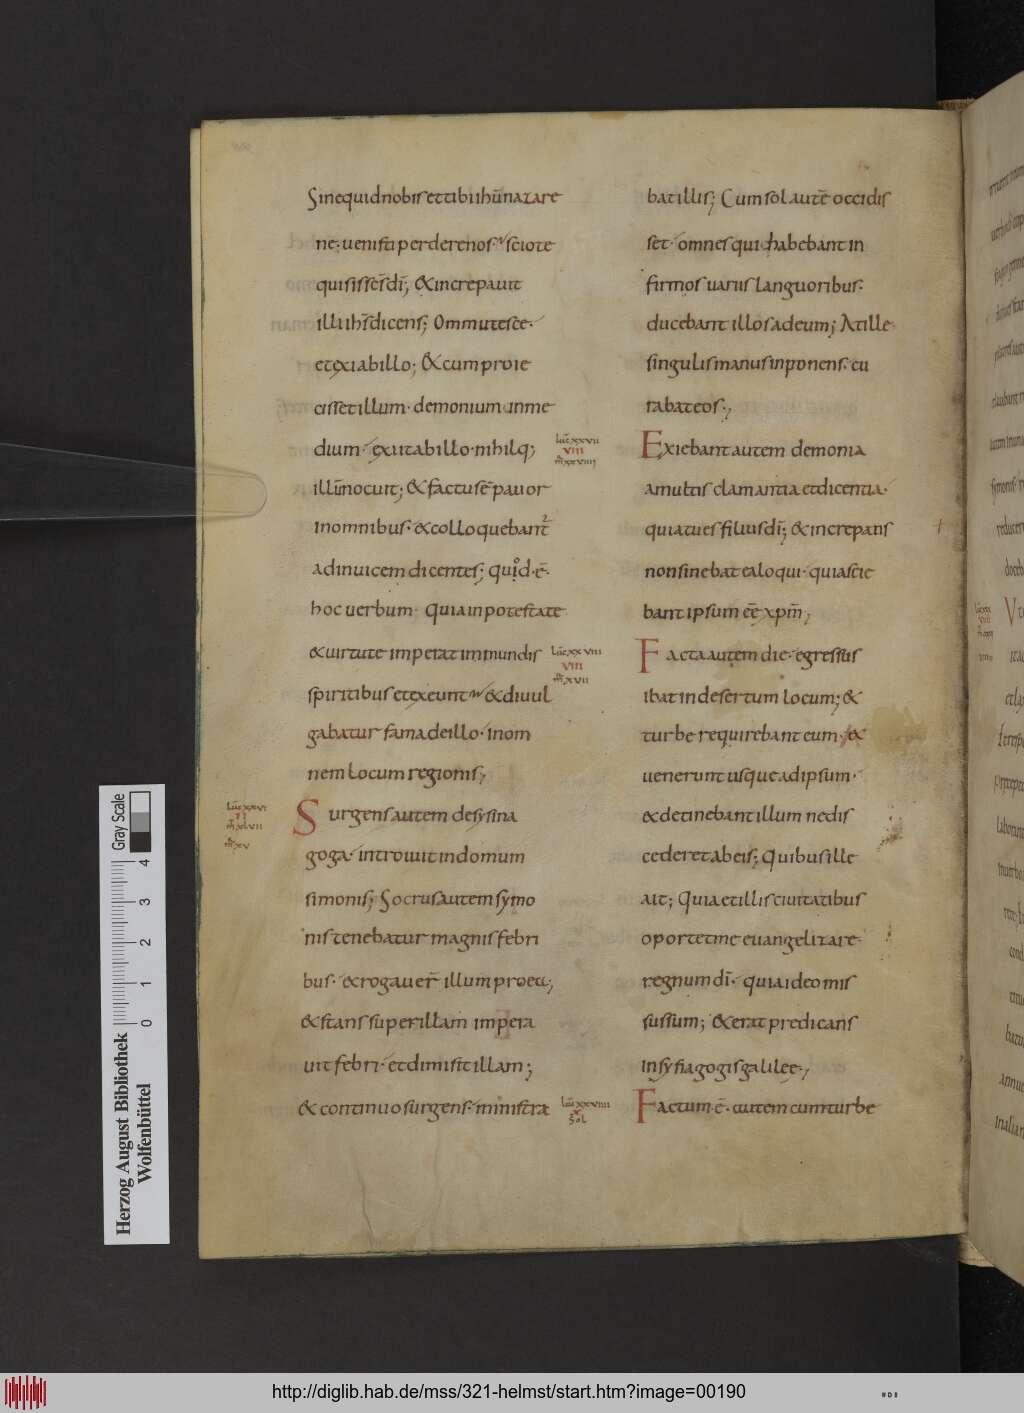 Sinequidnobisettibiihūnazare
ne; uenistiperderenos sciote
quisissēsdī; &increpauit
illiihs̄dicens; Ommutesce·
etexiabillo; &cumproie
cissetillum· demoniuminme
dium· exiitabillo·nihilq;
illūnocuit; &factusē pauor
inomnibus· &colloquebant
adinuicemdicentes; quid·ē·
hoc uerbum· Quiainpotestate
&uirtute imperatimmundis
spiritibusetexeunt &diuul
gabatur famadeillo· inom
nem Locum regionis;
Surgensautem desysina
goga· introiuitindomum
simonis; Socrusautemsymo
nistenebatur magnisfebri
bus· &rogauer̄ illumproea;
&stanssuperillam impera
uitfebri· etdimisitillam;
&continuosurgens· ministra
batillis; Cumsolautē occidis
set· omnesquihabebantin
firmosuariislanguoribus·
ducebant illosadeum; Atille
singulismanusinponens· cu
rabateos;
Exiebantautem demonia
amultisclamantiaetdicentia·
quiatuesfiliusdī; &increpans
nonsinebatealoqui· quiascie
bantipsum eē xpm̄;
Factaautem die· egressus
ibatindesertum locum; &
turberequirebanteum· &
ueneruntusqueadipsum·
&detinebantillum nedis
cederetabeis; Quibusille
ait; Quiaetilliscιuitatibus
oportetmeeuangelizare
regnumdī· quiaideomis
sussum; &eratpredicans
insynagogisgalilee;
Factum·ē· autemcumturbe
lūc xxvii
viii
lūc xxviii
viii
m̄r xvii
lūc xxvi
m̄r xv
lūc xxviiii
x
Sol
Gray Scale
4
3
2
1
0
Herzog August Bibliothek
Wolfenbüttel
http://diglib.hab.de/mss/321-helmst/start.htm?image=00190